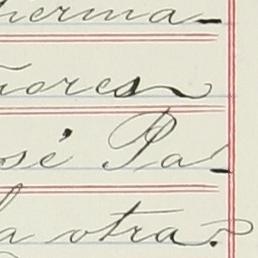 herma-
ñores
sé Pa-
la otra.